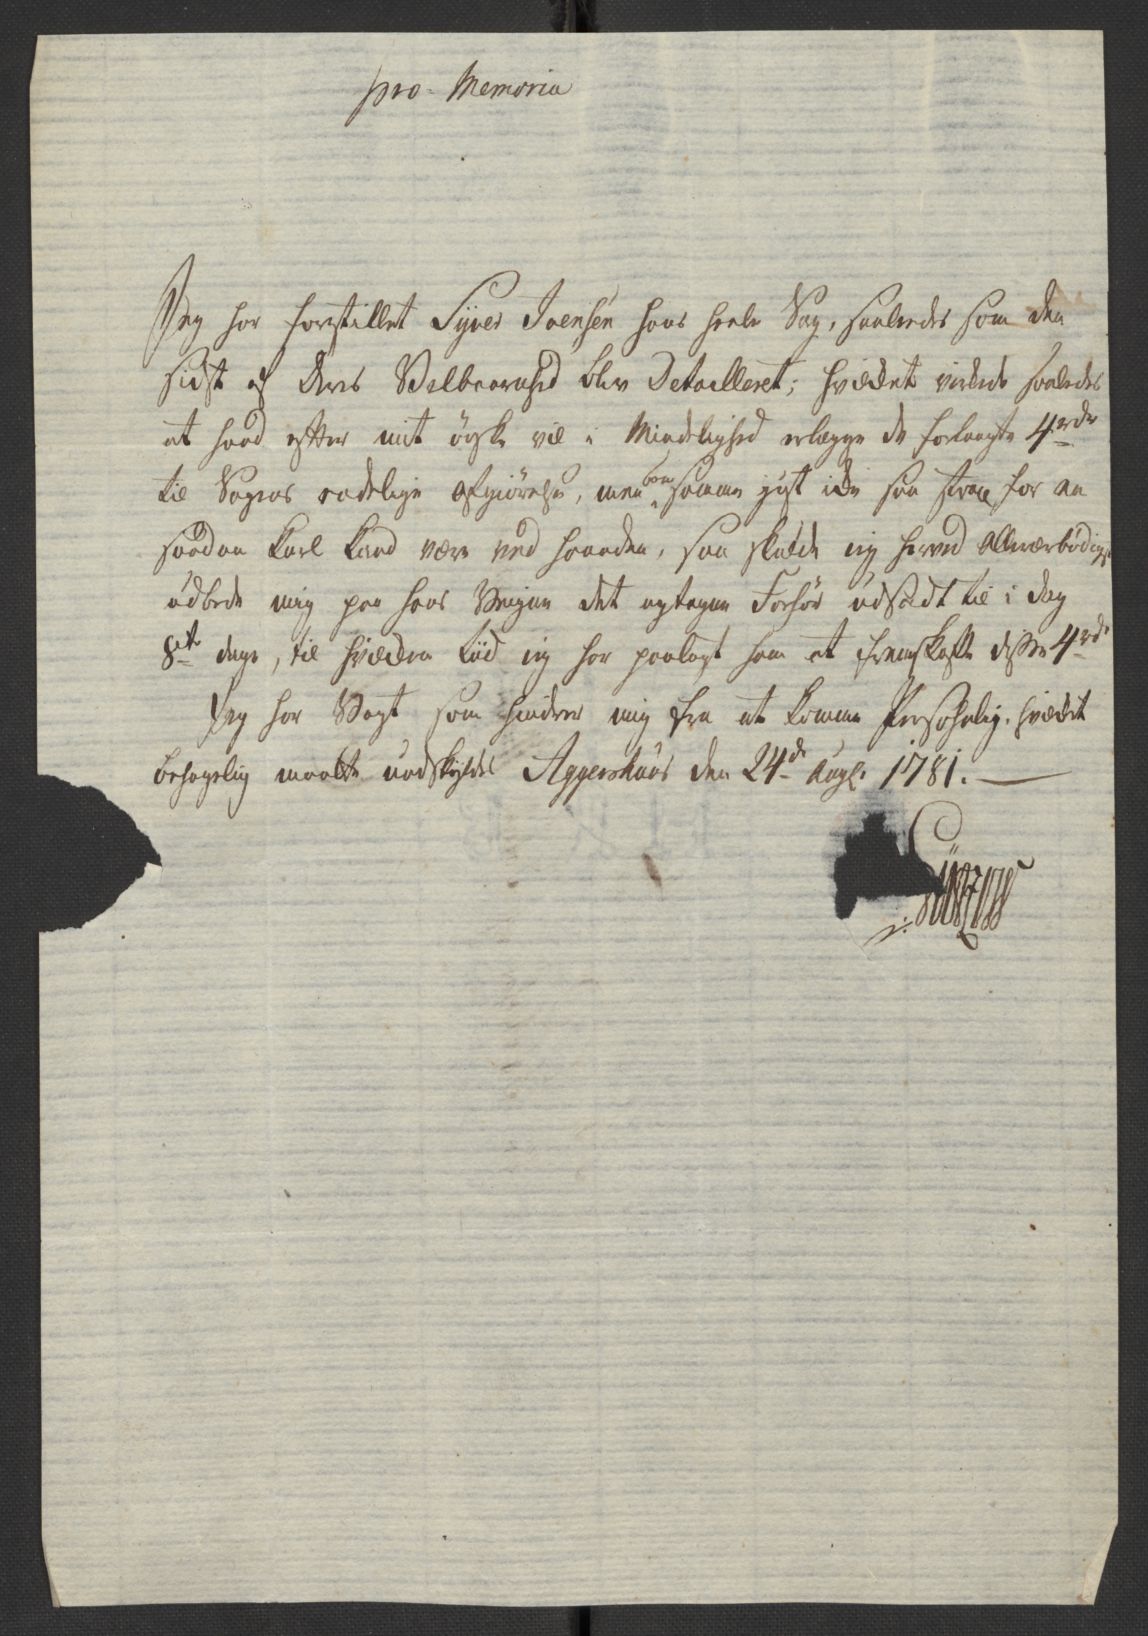 pro Memoria
Jeg har forestillet Syver Joensen hans heele Sag, saaledes som den
sidst af Deres Velbaarenhed blev Detailleret; hvilket virkede saaledes
at hand efter mit ønske vil i Mindelighed erlægge de forlangte 4 rdr
til Sagens endelige Afgiørelse, men som samme just icke saa strax for en
saadan Karl kand være ved haanden, saa skulde jeg herved Allerærbødigst
udbede mig paa hans Vegne det optagne Forhør udsadt til i dag
8te dage, til hvilken tiid jeg har paalagt ham at fremskaffe disse 4 rd.
Jeg har Vagt som hindrer mig fra at komme Personlig. hvilket
behagelig maatte undskyldes Aggershuus den 24de Aug. 1781.